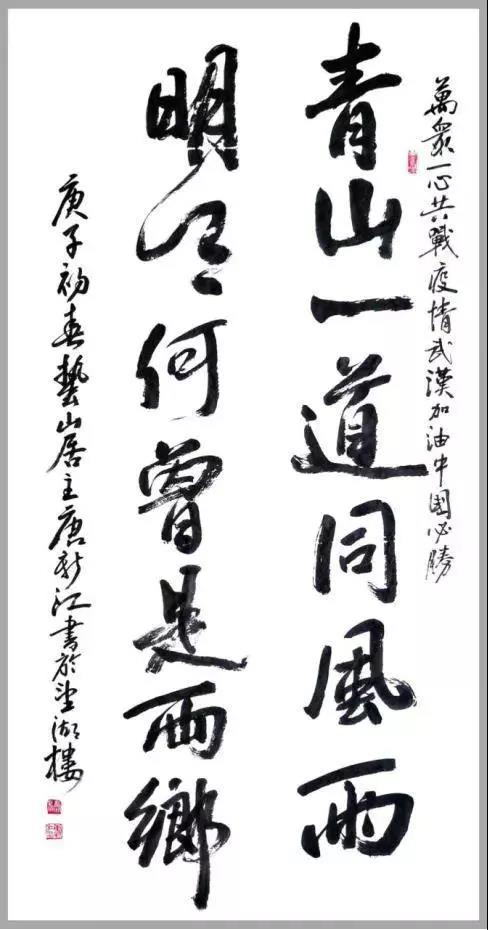 萬眾一心共戰疫情武漢加油中國必勝
青山一道同風雨
明月何曾是兩鄉
庚子初春藝山居主唐新江書於望湖樓